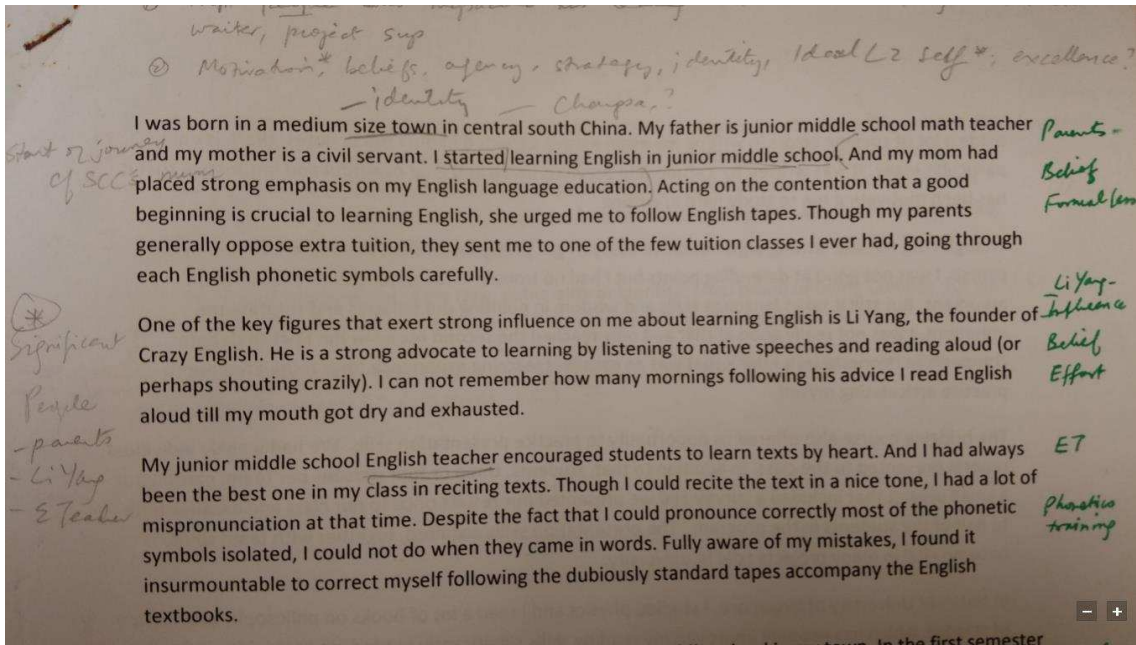 waiter, project sup
② Motivation*, beliefs, agency, strategy, identity, Ideal L2 self*, excellence?
– identity – Changsa?
I was born in a medium size town in central south China. My father is junior middle school math teacher
Parents -
Start of journey
and my mother is a civil servant. I started learning English in junior middle school. And my mom had
of SCC's
Belief
placed strong emphasis on my English language education. Acting on the contention that a good
Formal
beginning is crucial to learning English, she urged me to follow English tapes. Though my parents
generally oppose extra tuition, they sent me to one of the few tuition classes I ever had, going through
each English phonetic symbols carefully.
Li Yang-
Influence
*
One of the key figures that exert strong influence on me about learning English is Li Yang, the founder of
Significant
Crazy English. He is a strong advocate to learning by listening to native speeches and reading aloud (or
Belief
perhaps shouting crazily). I can not remember how many mornings following his advice I read English
Effort
People
aloud till my mouth got dry and exhausted.
- parents
My junior middle school English teacher encouraged students to learn texts by heart. And I had always
ET
- Li Yang
been the best one in my class in reciting texts. Though I could recite the text in a nice tone, I had a lot of
- E Teacher
mispronunciation at that time. Despite the fact that I could pronounce correctly most of the phonetic
Phonetics
training
symbols isolated, I could not do when they came in words. Fully aware of my mistakes, I found it
insurmountable to correct myself following the dubiously standard tapes accompany the English
textbooks.
In the first semester